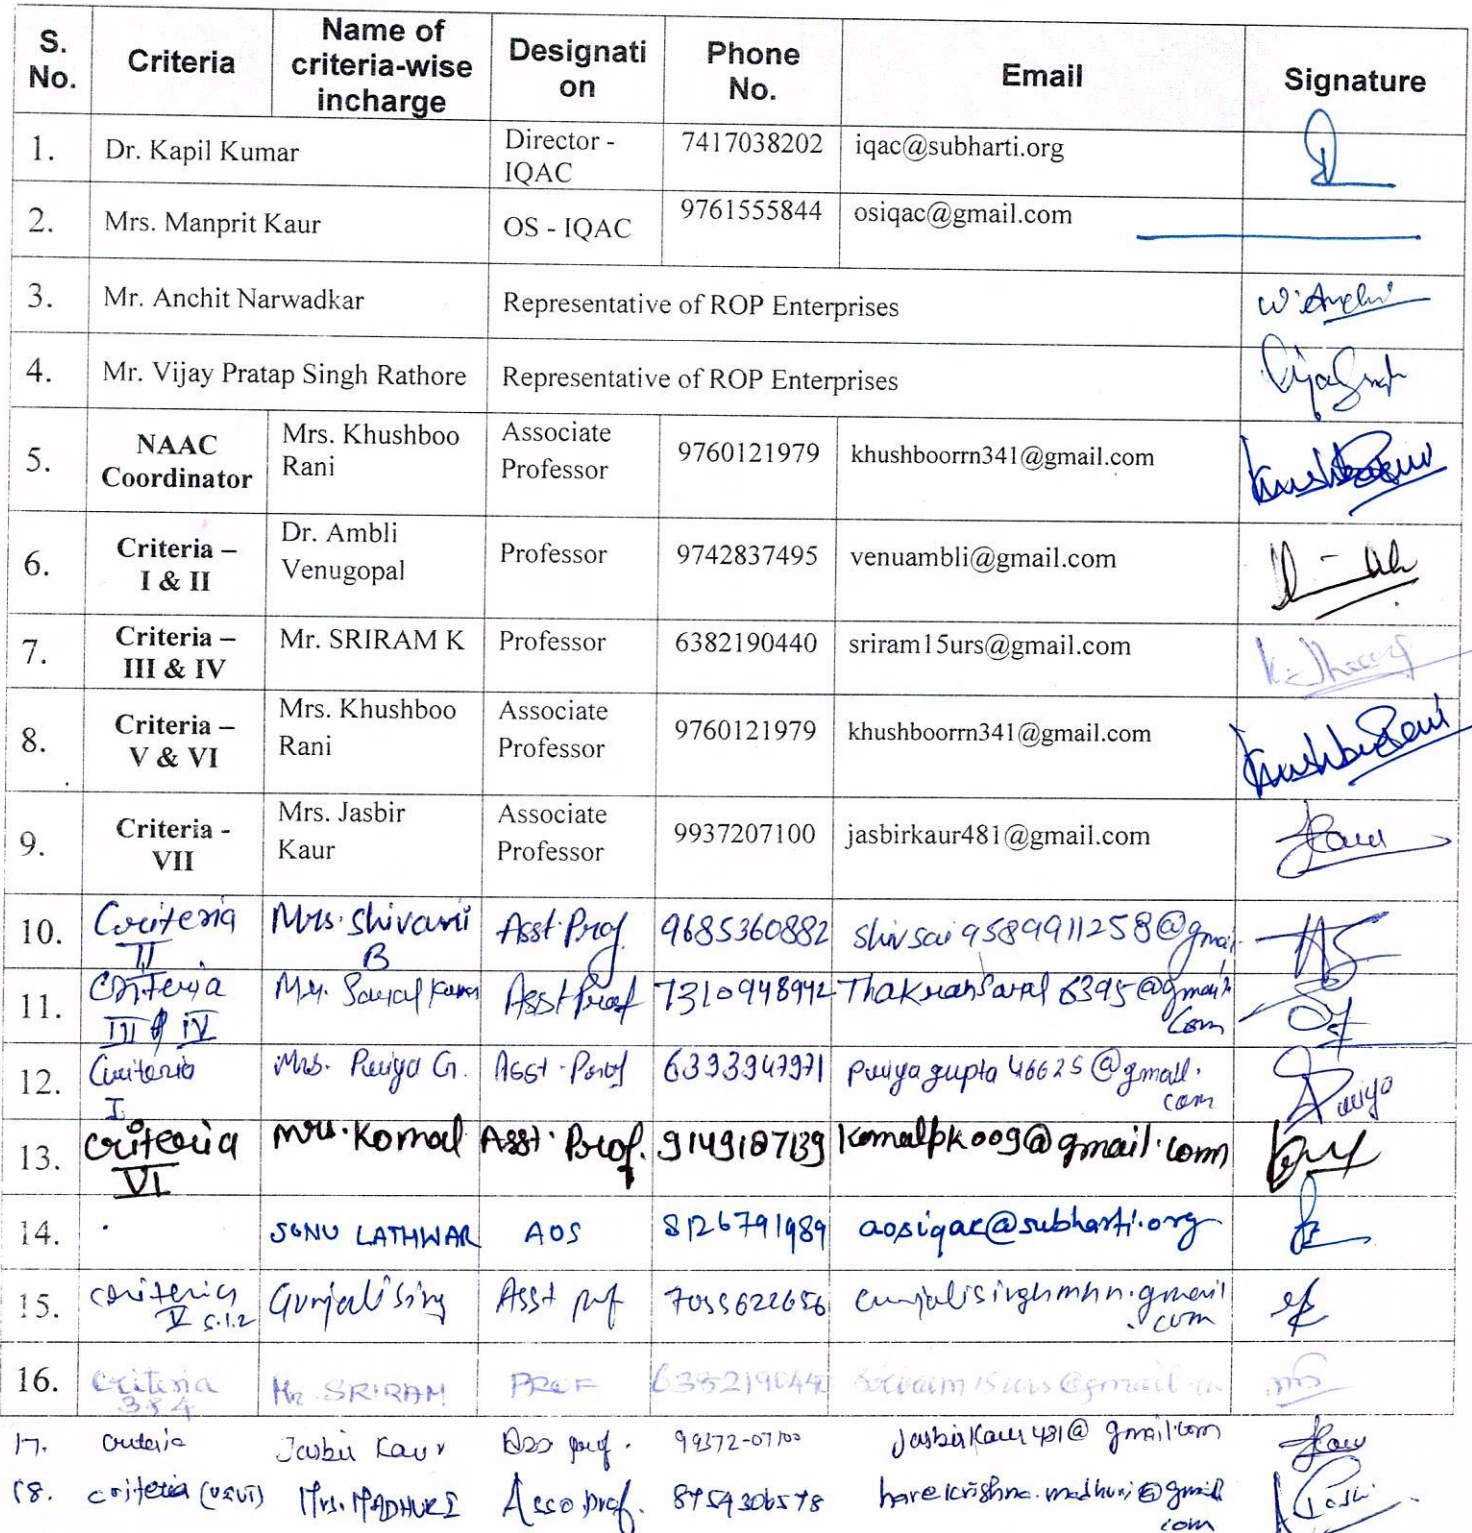 S. No. Criteria Name of criteria-wise incharge Designati on Phone No. Email Signature
1. Dr. Kapil Kumar Director - IQAC 7417038202 iqac@subharti.org
2. Mrs. Manprit Kaur OS - IQAC 9761555844 osiqac@gmail.com
3. Mr. Anchit Narwadkar Representative of ROP Enterprises
4. Mr. Vijay Pratap Singh Rathore Representative of ROP Enterprises
5. NAAC Coordinator Mrs. Khushboo Rani Associate Professor 9760121979 khushboorrn341@gmail.com
6. Criteria – I & II Dr. Ambli Venugopal Professor 9742837495 venuambli@gmail.com
7. Criteria – III & IV Mr. SRIRAM K Professor 6382190440 sriram15urs@gmail.com
8. Criteria – V & VI Mrs. Khushboo Rani Associate Professor 9760121979 khushboorrn341@gmail.com
9. Criteria - VII Mrs. Jasbir Kaur Associate Professor 9937207100 jasbirkaur481@gmail.com
10. Criteria II Mrs. Shivani B Asst. Prof. 9685360882 shivsai9589911258@gmai
11. Criteria III & IV Mr. Asst Prof 7310948942
12. Criteria I Mrs. Priya G. Asst. Prof 6393947971 priyagupta46625@gmail.com Priya
13. Criteria VI Mrs. Komal Asst. Prof. 9149187139 komalpk009@gmail.com
14. SONU LATHWAR AOS 8126791989 aosiqac@subharti.org
15. Criteria V 5.1.2 Gunjali Sing Asst prf 7055622656
16. Criteria 3 & 4 Mr SRIRAM PROF
17. Criteria Jasbir Kaur Aso prof. 99372-07100 jasbirkaur481@gmail.com
18. criteria (V&VI) Mrs. MADHURI Asso prof. harekrishna.madhuri@gmail.com